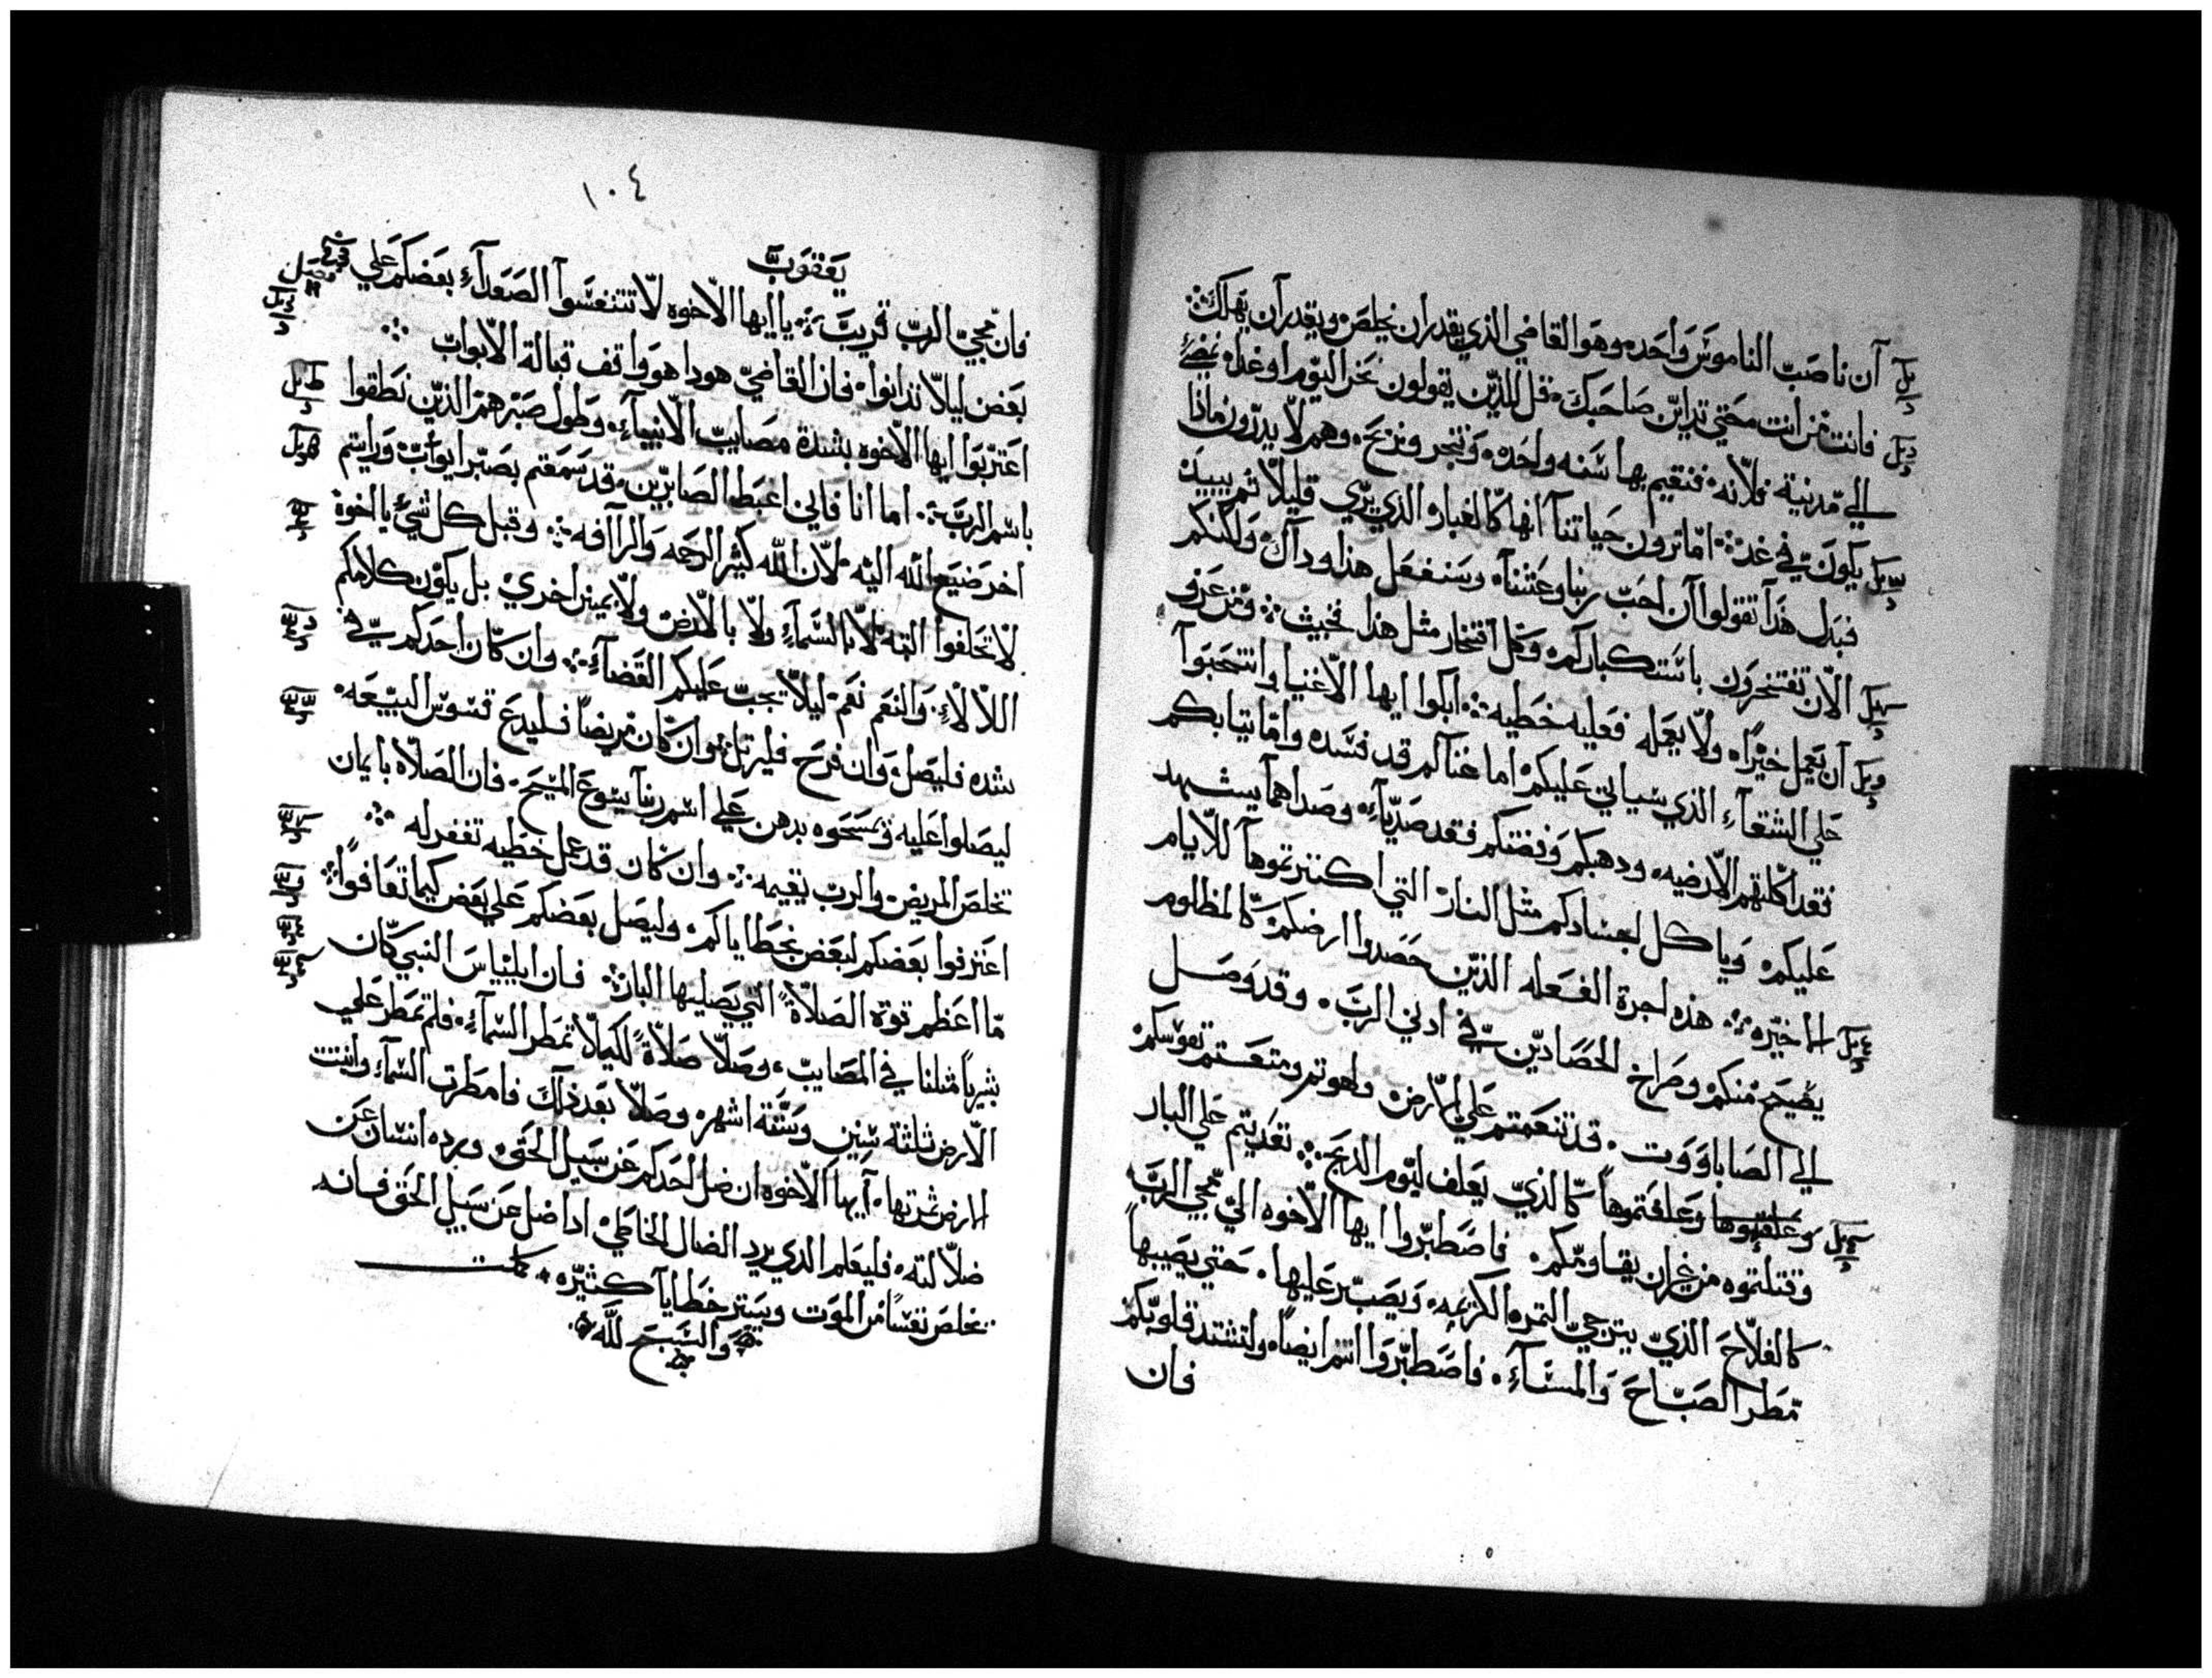 ان ناصب الناموس واحده وهو القاضي الذي يقدر ان يخلص ويقدر ان يهلك
فانت من انت حتي تداين صاحبك قل للذين يقولون نحن اليوم او غدا نمضي
الي مدينة فلانه فنقيم بها سنه واحده ونتجر ونربح وهم لا يدرون ماذا
يكون في غد اما ترون حياتنا انها كالغبار الذي يري قليلا ثم يبيد
فبدل هذا تقولوا ان احب ربنا وعشنا وسنفعل هذا وداك ولكنكم
الان تفتخرون باستكباركم وكل افتخار مثل هذا خبيث ومن عرف
ان يعمل خيرا ولا يعمله فعليه خطيه ابكوا ايها الاغنيا وانتحبوا
علي الشقاء الذي سياتي عليكم اما غناكم قد فسده واما ثيابكم
فقد اكلتهم الارضيه ودهبكم وفضتكم فقد صديآء وصداهما يشهد
عليكم وياكل اجسادكم مثل النار التي اكتنزتموها للايام
الاخيره هذه اجرة الفعله الذين حصدوا ارضكم كالمظلوم
يضيح منكم وصراخ الحصادين في ادني الرب وقد وصل
الي الصاباووت قد تنعمتم علي الارض ولهوتم ومتعتم نفوسكم
وعلفتموها كالذي يعلف ليوم الذبح تعديتم علي البار
وقتلتموه من غير ان يقاومكم فاصطبروا ايها الاخوه الي مجي الرب
كالفلاح الذي يترجي التمره الكريمه ويصبر عليها حتي يصيبها
مطر الصباح والمساء فاصطبروا انتم ايضا ولتشتد قلوبكم
فان
١٠٤
يعقوب
فان مجي الرب قريب يا ايها الاخوه لا تتنفسوا الصعدآء بعضكم علي
بعض ليلا تدانوا فان القاضي هودا هو واقف قبالة الابواب
اعتبروا ايها الاخوه بشدة مصايب الانبيآء وطول صبرهم الذين نطقوا
باسم الرب اما انا فاني اغبط الصابرين قد سمعتم بصبر ايوب ورايتم
اخر صنيع الله اليه لان الله كثير الرحمه والرافه وقبل كل شي يا اخوة
لا تحلفوا البته لا بالسماء ولا بالارض ولا بيمين اخري بل يكون كلامكم
اللا لاء والنعم نعم ليلا تجب عليكم القضآء وان كان احدكم في
شده فليصل وان فرح فليرتل وان كان مريضا فليدع قسوس البيعه
ليصلوا عليه ويمسحوه بدهن علي اسم ربنا يسوع المسيح فان الصلاه بايمان
تخلص المريض والرب يقيمه وان كان قد عمل خطيه تغفر له
اعترفوا بعضكم لبعض بخطاياكم وليصل بعضكم علي بعض كيما تعافوا
ما اعظم قوة الصلاة التي يصليها البار فان ايلياس النبي كان
بشيريا مثلنا في المصايب وصلا صلاة لكيلا تمطر السماء فلم تمطر علي
الارض ثلثة سنين وستة اشهر وصلا بعد ذلك فامطرت السماء وانبتت
الارض ثمرتها ايها الاخوه ان ضل احدكم عن سبيل الحق ورده انسان عن
ضلالته فليعلم الذي يرد الضال الخاطي اذا ضل عن سبيل الحق فانه
يخلص نفسا من الموت ويستر خطايا كثيره كملت
والسبح لله